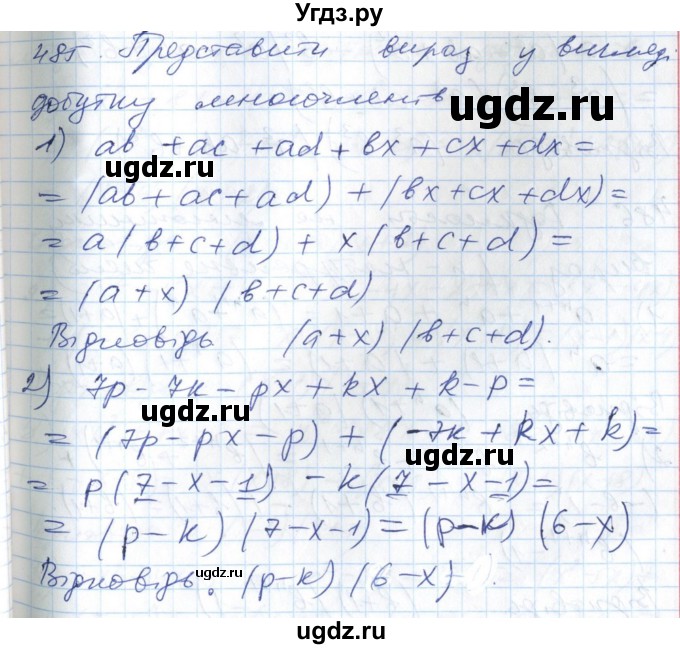 Угдз.ру
485. Представити вираз у вигляді
добутку многочленів
ugdz.ru
1) ab + ac + ad + bx + cx + dx =
ugdz.ru
= (ab + ac + ad) + (bx + cx + dx) =
= a(b+c+d) + x(b+c+d) =
= (a+x) (b+c+d)
ugdz.ru
Відповідь (a+x) (b+c+d).
2) 7p - 7k - px + kx + k - p =
ugdz.ru
= (7p - px - p) + (-7k + kx + k) =
ugdz.ru
= p(7 - x - 1) - k(7 - x - 1) =
= (p - k) (7 - x - 1) = (p - k) (6 - x)
Відповідь: (p - k) (6 - x)
ugdz.ru
ugdz.ru